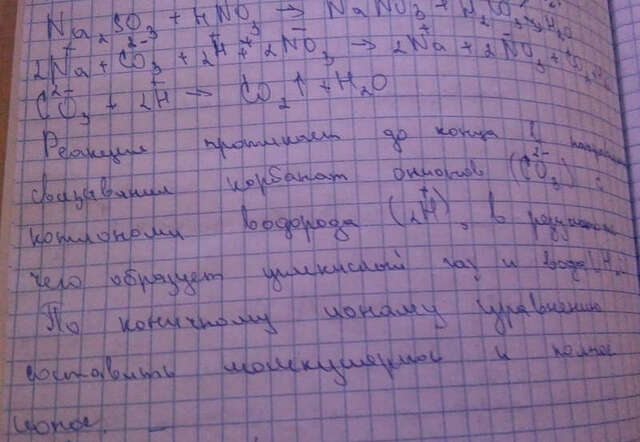 Na₂SO₃ + HNO₃ → NaNO₃ +
2Na⁺ + CO₃²⁻ + 2H⁺ + 2NO₃⁻ → 2Na⁺ + 2NO₃⁻ +
CO₃²⁻ + 2H⁺ → CO₂↑ + H₂O
Реакция протикает до конца в
связывания корбанат онионов (CO₃²⁻) с
котиономи водорода (2H⁺), в
чего образует углекислый газ и вода
По коничному ионому уравнению
составить молекулярное и полное
ионое.